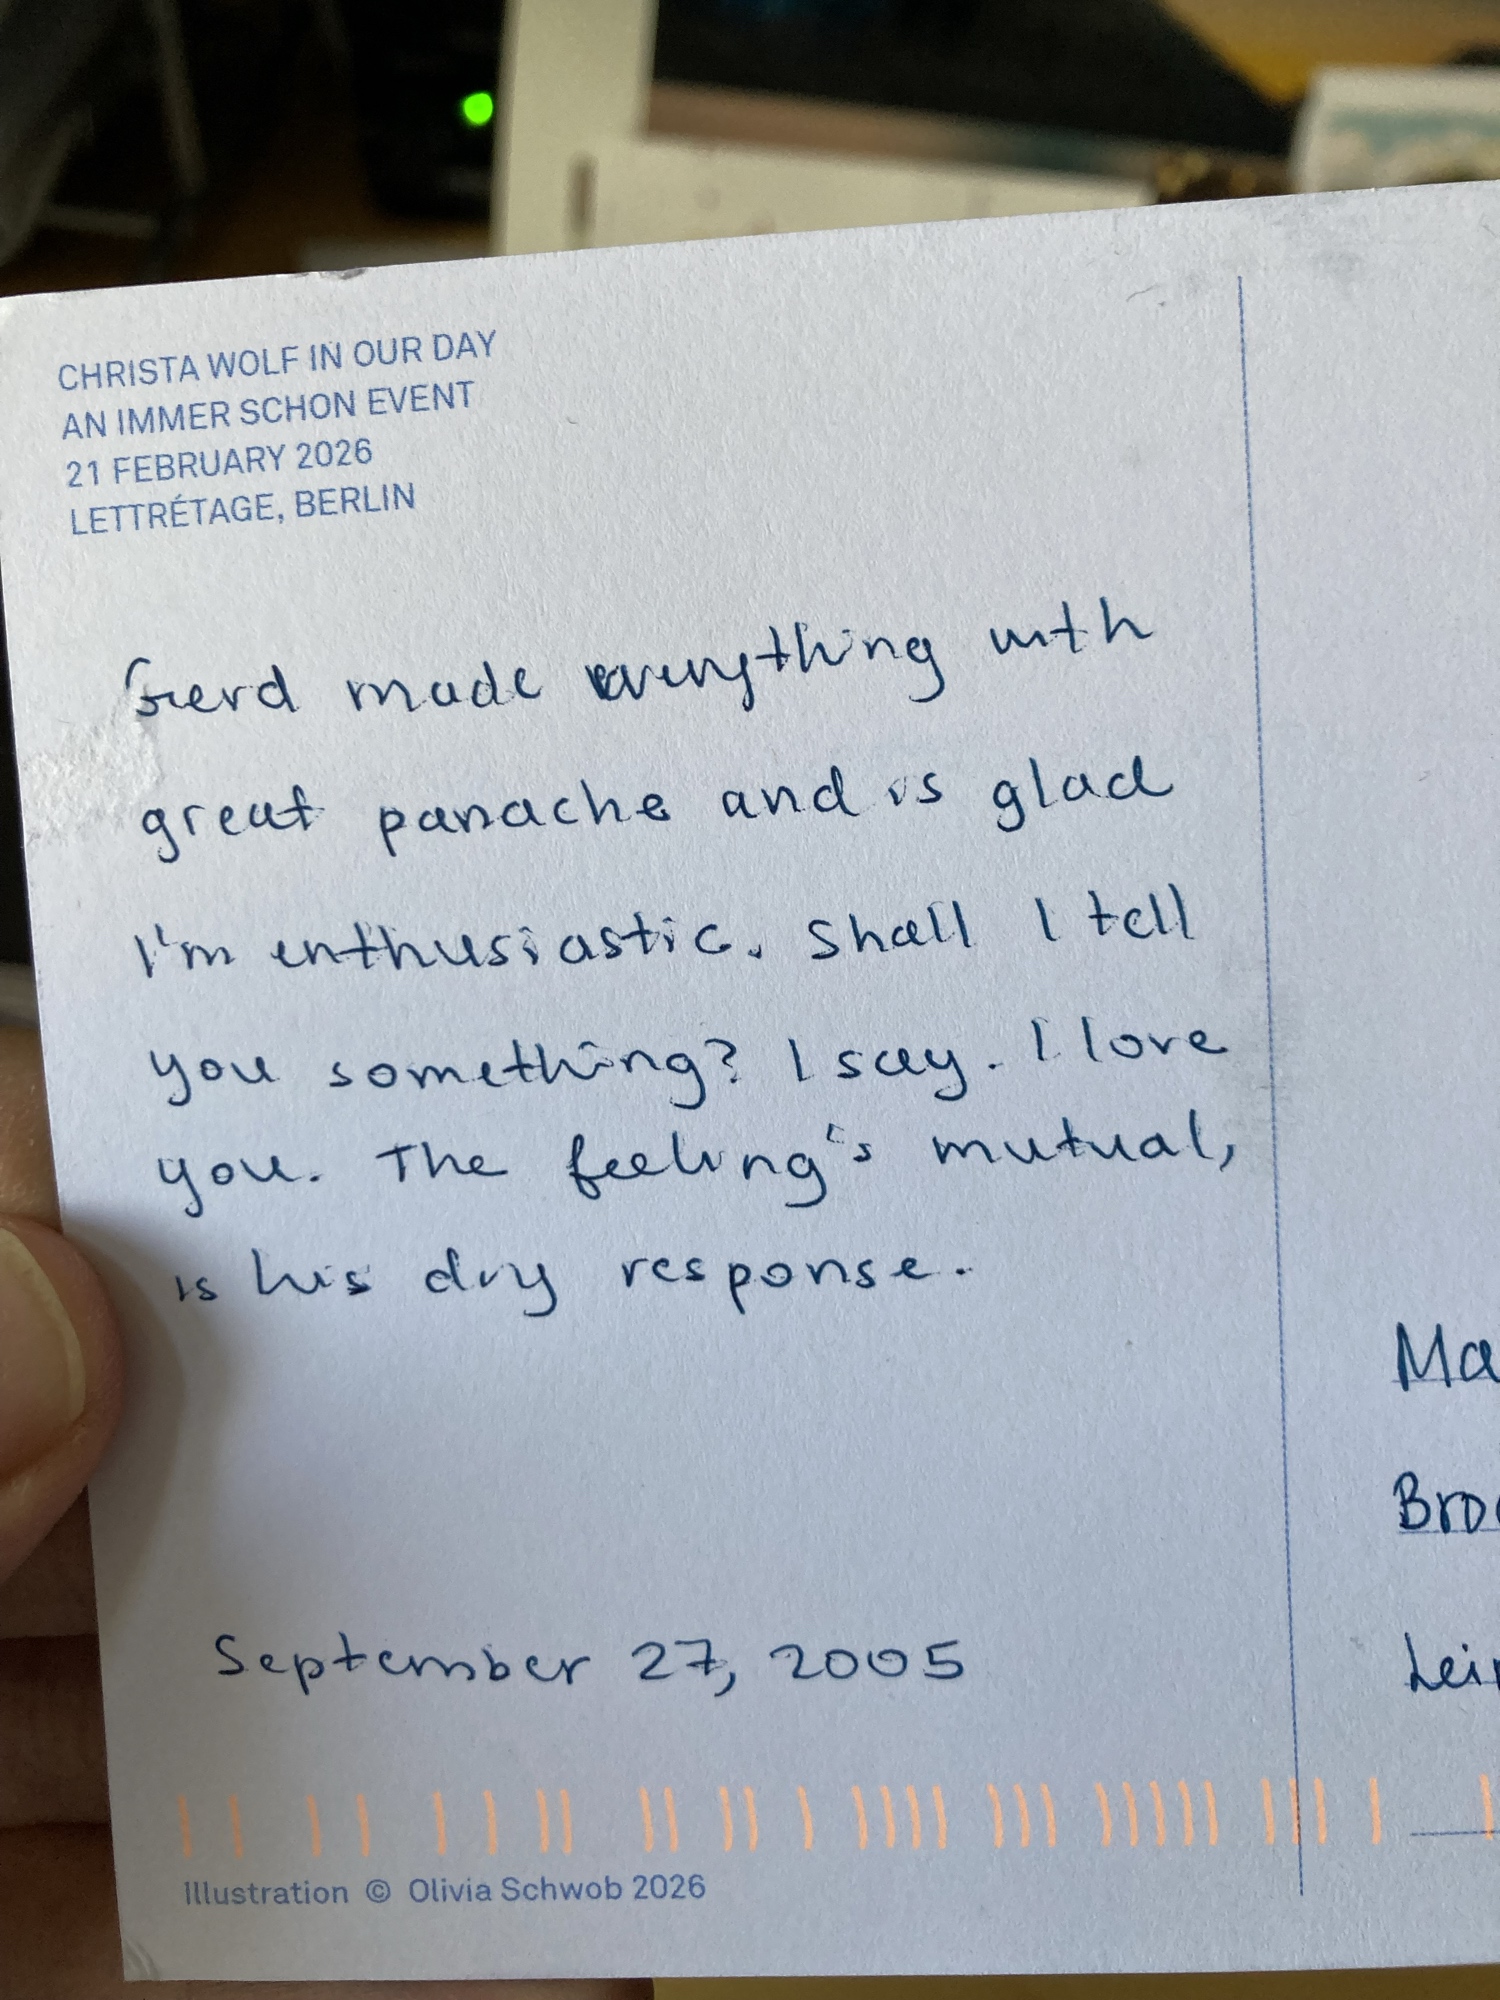 CHRISTA WOLF IN OUR DAY
AN IMMER SCHON EVENT
21 FEBRUARY 2026
LETTRÉTAGE, BERLIN
Gerd made everything with
great panache and is glad
I'm enthusiastic. Shall I tell
you something? I say. I love
you. The feeling's mutual,
is his dry response.
September 27, 2005
Illustration © Olivia Schwob 2026